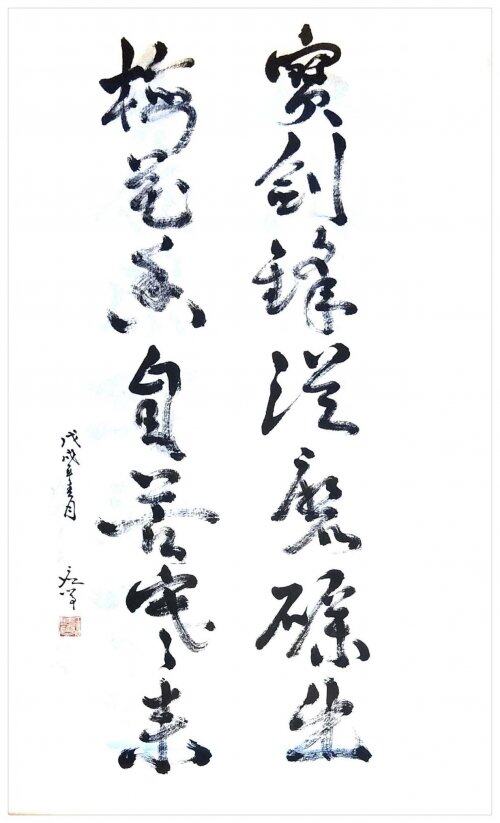 寶劍鋒從磨礪出
梅花香自苦寒來
戊戌年
月